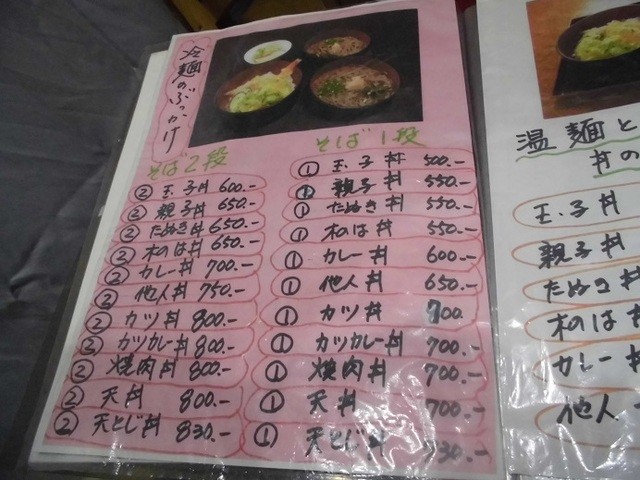 冷麺のぶっかけ
そば2段
② 玉子丼 600.-
② 親子丼 650.-
② たぬき丼 650.-
② 木のは丼 650.-
② カレー丼 700.-
② 他人丼 750.-
② カツ丼 800.-
② カツカレー丼 800.-
② 焼肉丼 800.-
② 天丼 800.-
② 天とじ丼 830.-
そば1段
① 玉子丼 500.-
① 親子丼 550.-
① たぬき丼 550.-
① 木のは丼 550.-
① カレー丼 600.-
① 他人丼 650.-
① カツ丼 700.
① カツカレー丼 700.-
① 焼肉丼 700.-
① 天丼 700.-
① 天とじ丼 730.-
温麺と
丼の
玉子丼
親子丼
たぬき丼
木のは丼
カレー丼
他人